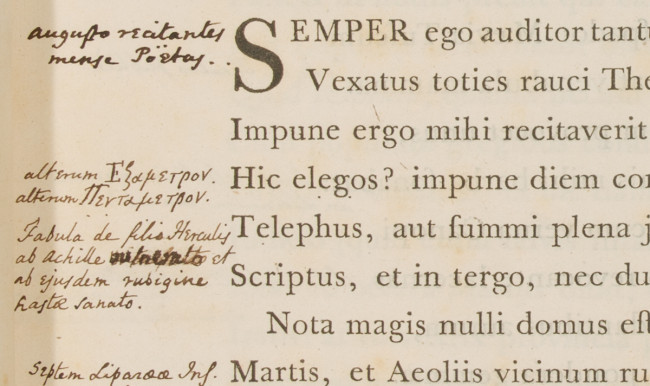 augusto recitantes
mense Poëtas.
SEMPER ego auditor tant
Vexatus toties rauci The
Impune ergo mihi recitaverit
alterum Ἑξαμετρον.
alterum Πενταμετρον.
Hic elegos? impune diem con
Fabula de filio Herculis
ab Achille vulnerato et
ab ejusdem rubigine
hastæ sanato.
Telephus, aut ſummi plena
Scriptus, et in tergo, nec du
Nota magis nulli domus eſt
Septem Liparææ Inſ.
Martis, et Aeoliis vicinum ru